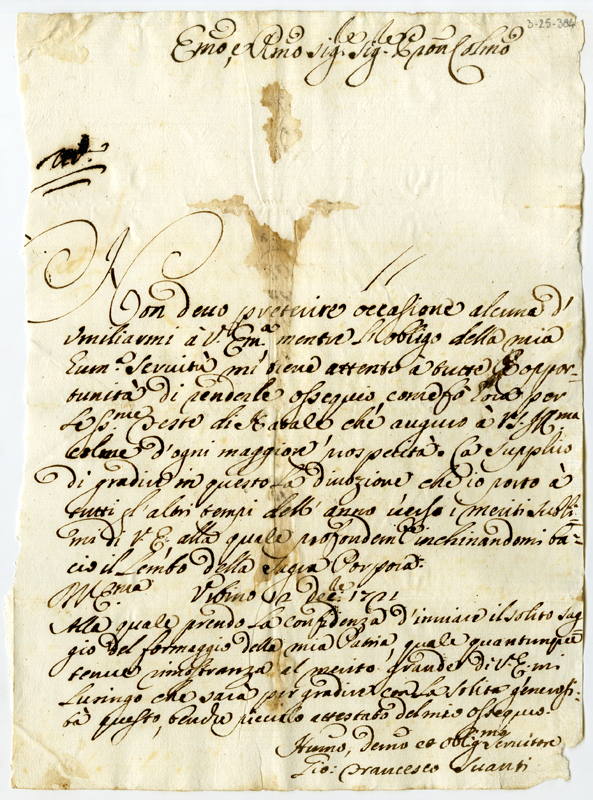 D-25-384
Emo, e Rmo Sig.r Sig.r Pron Colmo
Non deuo preterire occasione alcuna d'
vmiliarmi à V. Em.a mentre l'obligo della mia
hum.a Seruitù mi tiene attento à tutte le oppor-
tunità di renderle ossequio, come fò ora per
le S.me Feste di Natale che auguro à V.
colme d'ogni maggiore prosperità. La Supplico
di gradire in questo la diuozione che io porto à
tutti gl'altri tempi dell'anno uerso i meriti subli-
mi di V. E. alla quale profondem.e inchinandomi ba-
cio il Lembo della Sagra Porpora.
Vrbino 12 1721
Alla quale prendo la confidenza d'inuiare il solito sag-
gio del formaggio della mia Patria, quale quantunque
tenue rimostranza al merito grande di V. E. mi
Lusingo che sarà per gradire con la solita generosi-
tà questo, benche piccolo attestato del mio ossequio.
Humo, Deumo et Obligmo Seruitore
Gio: Francesco